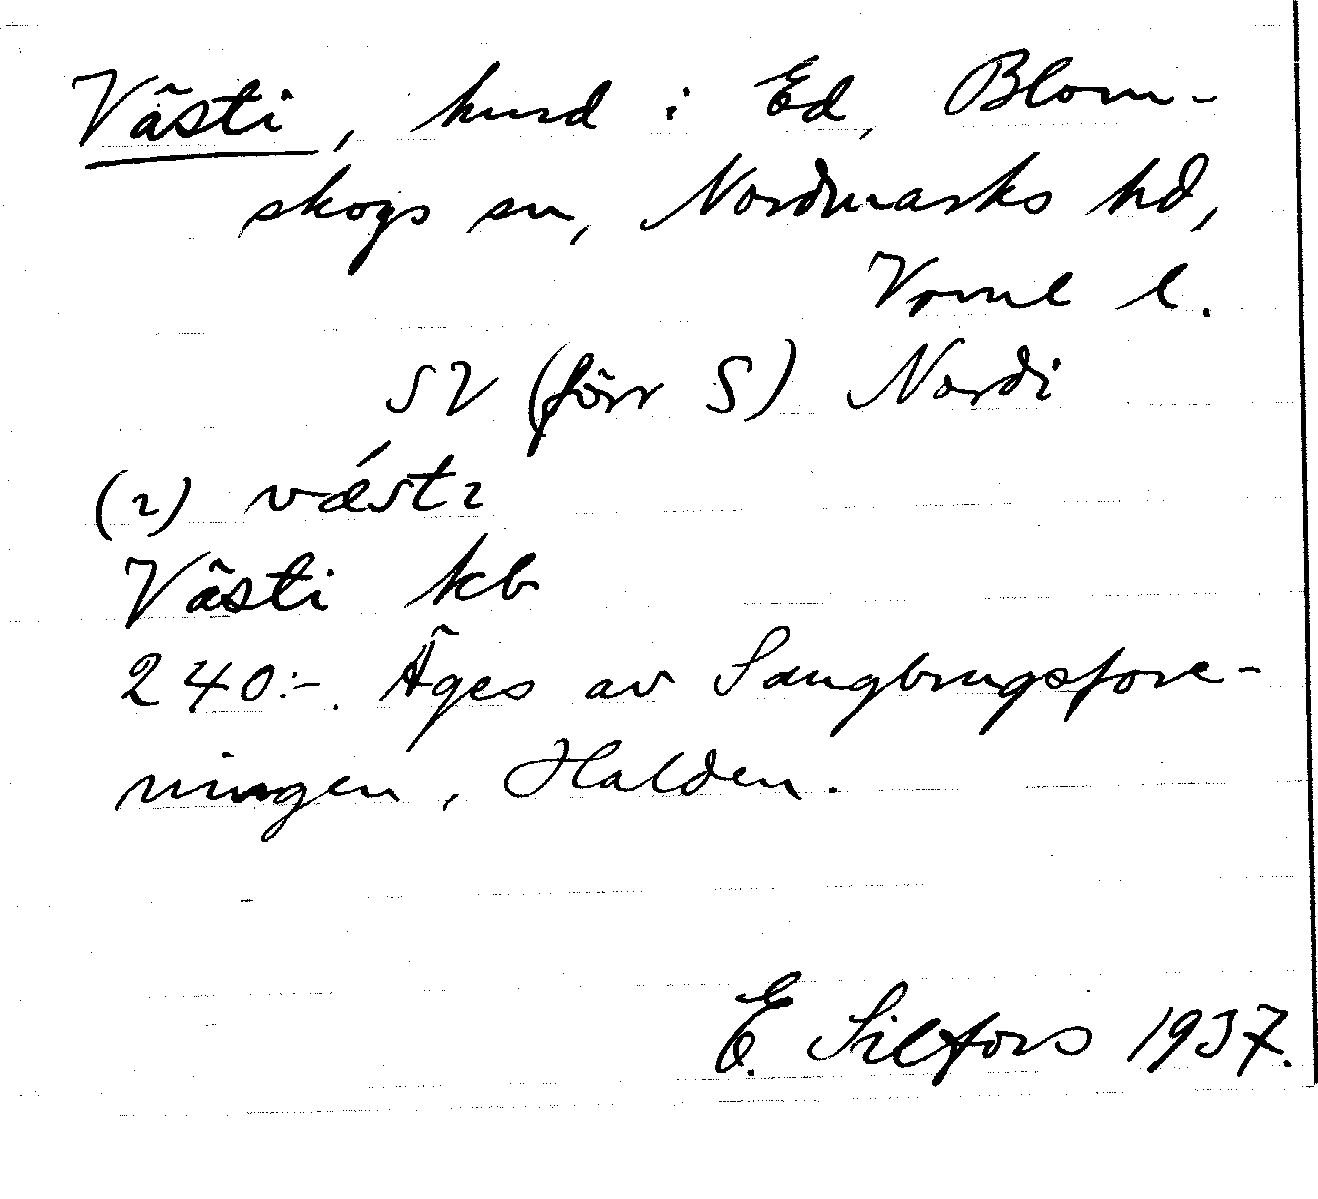 Västi, hmd i Ed, Blom-
skogs sn, Nordmarks hd,
Vrml l.
SV (förr S) Nordi
(2) vǽstɩ
Västi kb
240:-. Äges av Saugbrugsfore-
ningen, Halden.
E. Silfors 1937.